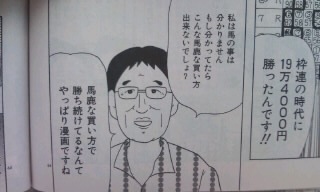 枠連の時代に
19万4000円
勝ったんです!!
私は馬の事は
分かりません
もし分かってたら
こんな馬鹿な買い方
出来ないでしょ?
馬鹿な買い方で
勝ち続けてるなんて
やっぱり漫画ですね
7 R